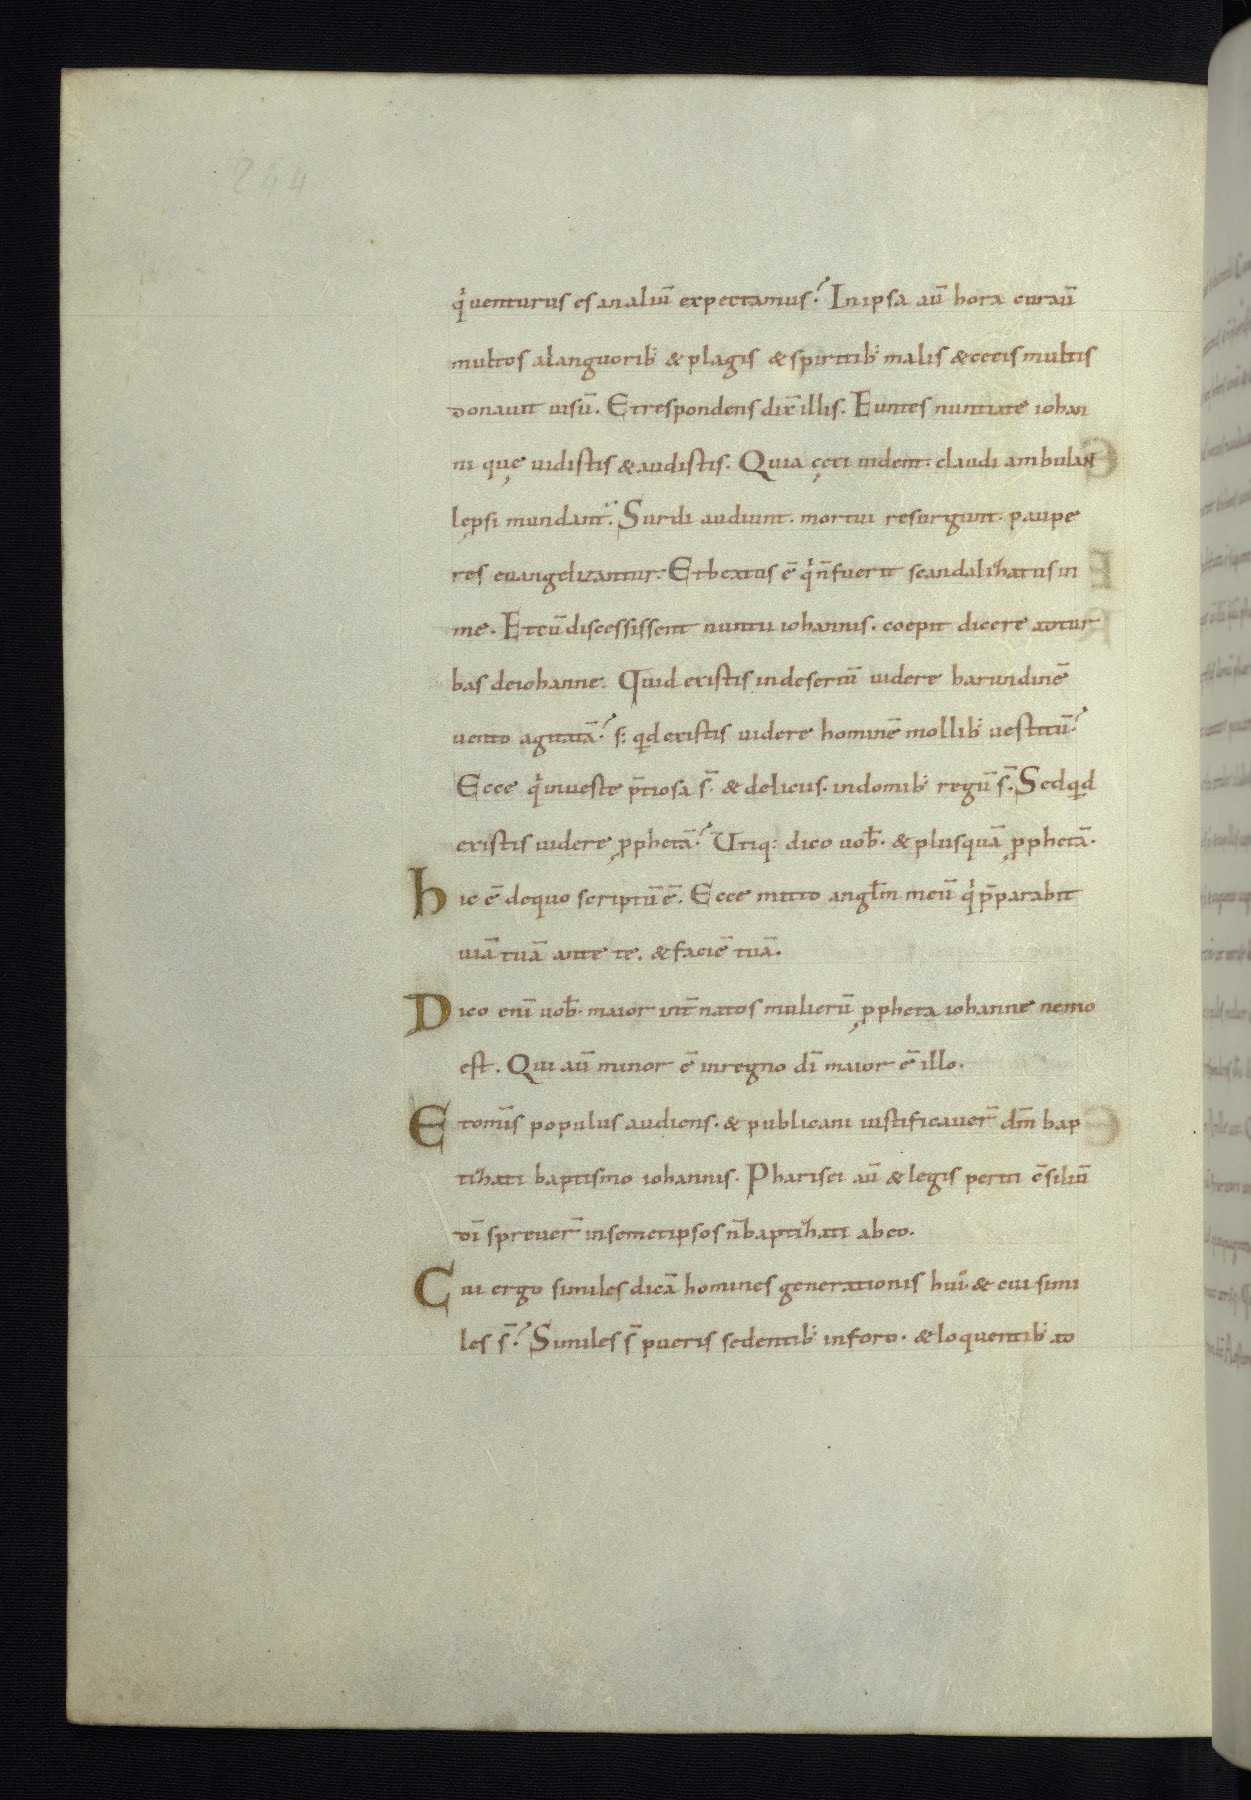 244
qͥ uenturus es an aliū expectamus? In ipsa aū hora curaū
multos a languorib; & plagis & spiritib; malis & cecis multis
donauit uisū. Et respondens dix̄ illis. Euntes nuntiate iohan
ni quę uidistis & audistis. Quia cęci uident. claudi ambulaɴ
lępsi mundant᷑. Surdi audiunt. mortui resurgunt. paupe
res euangelizantur. Et beatus ē qͥ n̄ fuerit scandalihatus in
me. Et cū discessissent nuntii iohannis. coepit dicere ad tur
bas de iohanne. Quid existis in desertū uidere harundinē
uento agitatā? s; qͥd existis uidere hominē mollib; uestitū?
Ecce qͥ in ueste p̄tiosa s̄ & deliciis. in domib; regū s̄. Sed qͥd
existis uidere ꝓphetā? Utiq; dico uob̄. & plus quā ꝓphetā.
hic ē de quo scriptū ē. Ecce mitto angl̄m meū qͥ p̄parabit
uiā tuā ante te. & faciē tuā.
Dico enī uob̄. maior int̄ natos mulierū ꝓpheta iohanne nemo
est. Qui aū minor ē in regno dī maior ē illo.
Et om̄is populus audiens. & publicani iustificauer̄ dm̄ bap
tihati baptismo iohannis. Pharisei aū & legis periti c̄siliū
dī spreuer̄ in semetipsos n̄ baptihati ab eo.
Cui ergo similes dicā homines generationis huiꝰ. & cui simi
les s̄? Similes s̄ pueris sedentib; in foro. & loquentib; ad